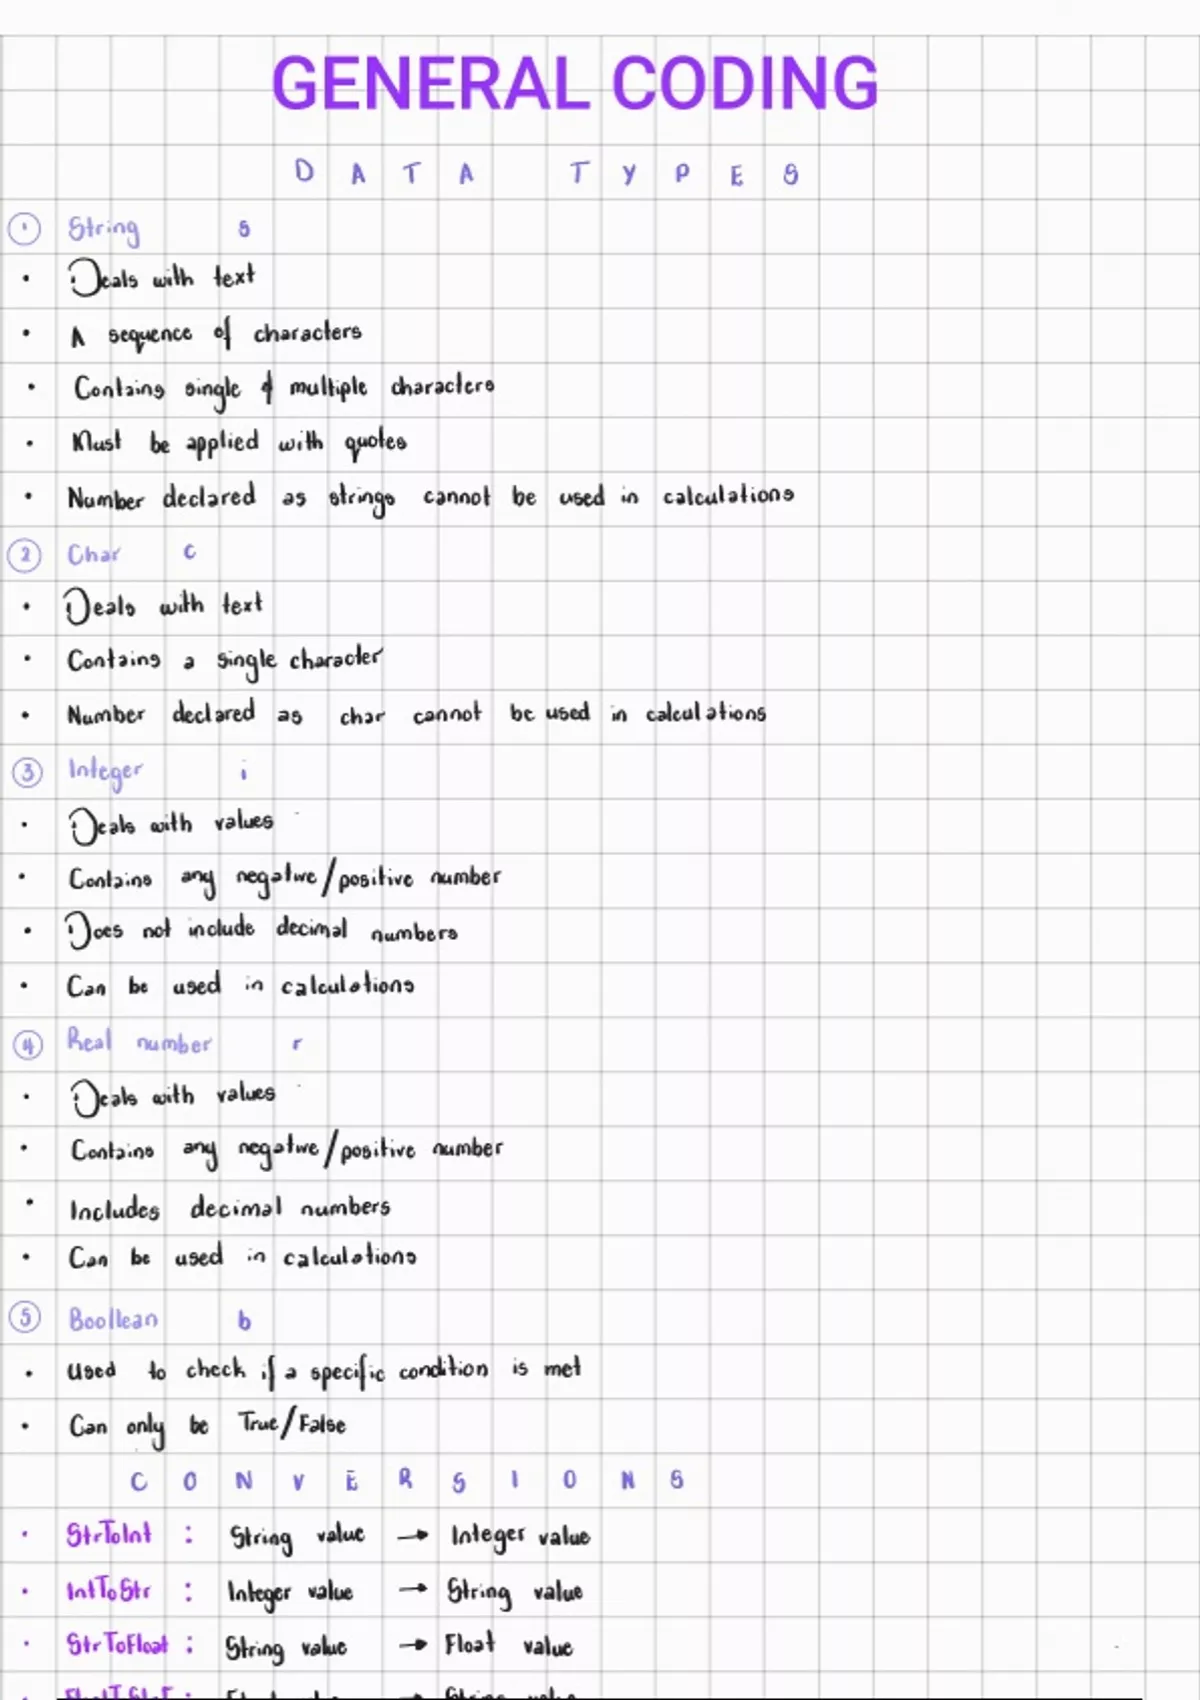 GENERAL CODING
DATA TYPES
1 String s
• Deals with text
• A sequence of characters
• Contains single & multiple characters
• Must be applied with quotes
• Number declared as strings cannot be used in calculations
2 Char c
• Deals with text
• Contains a single character
• Number declared as char cannot be used in calculations
3 Integer i
• Deals with values
• Contains any negative/positive number
• Does not include decimal numbers
• Can be used in calculations
4 Real number r
• Deals with values
• Contains any negative/positive number
• Includes decimal numbers
• Can be used in calculations
5 Boollean b
• Used to check if a specific condition is met
• Can only be True/False
CONVERSIONS
• StrToInt : String value → Integer value
• IntToStr : Integer value → String value
• StrToFloat : String value → Float value